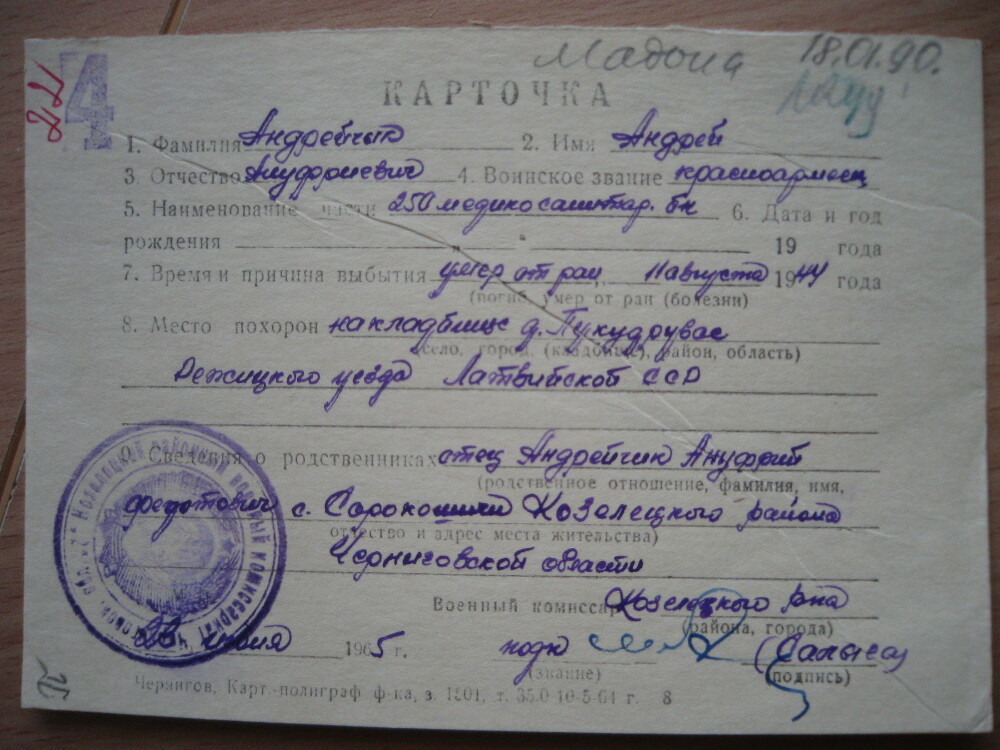 Мадона 18.01.90.
22
4
КАРТОЧКА
1. Фамилия Андрейчик 2. Имя Андрей
3. Отчество Ануфриевич 4. Воинское звание красноармеец
5. Наименование части 250 медикосанитар. бн 6. Дата и год
рождения „ “ 19 года
7. Время и причина выбытия умер от ран, 11 августа 1944 года
(погиб, умер от ран (болезни)
8. Место похорон на кладбище д. Пукудрувас
село, город, (кладбище), район, область)
Режицкого уезда Латвийской ССР
9. Сведения о родственниках отец Андрейчик Ануфрий
(родственное отношение, фамилия, имя,
Федотович с. Сорокошичи Козелецкого района
отчество и адрес места жительства)
Черниговской области
Военный комиссар Козелецкого р-на
(района, города)
июня 1965 г. подп
(звание) (подпись)
Чернигов, Карт.-полиграф ф-ка, з. 1501, т. 8